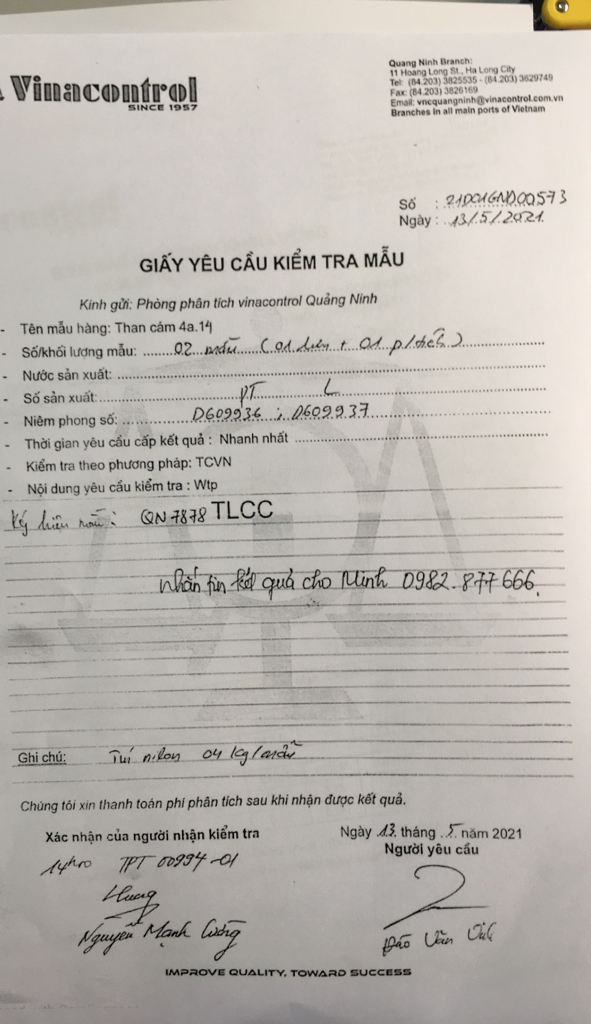 Vinacontrol
SINCE 1957
Quang Ninh Branch:
11 Hoang Long St., Ha Long City
Tel: (84.203) 3825535 - (84.203) 3629749
Fax: (84.203) 3826169
Email: vncquangninh@vinacontrol.com.vn
Branches in all main ports of Vietnam
Số : 21D01GND00573
Ngày : 13/5/2021.
GIẤY YÊU CẦU KIỂM TRA MẪU
Kính gửi: Phòng phân tích vinacontrol Quảng Ninh
- Tên mẫu hàng: Than cám 4a.14
- Số/khối lượng mẫu: 02 mẫu (01 lưu + 01 p/tích)
- Nước sản xuất:
- Số sản xuất: PT L
- Niêm phong số: D609936 ; D609937
- Thời gian yêu cầu cấp kết quả : Nhanh nhất
- Kiểm tra theo phương pháp: TCVN
- Nội dung yêu cầu kiểm tra : Wtp
Ký hiệu mẫu: QN 7878 TLCC
nhắn tin kết quả cho Minh 0982.877666.
Ghi chú: Túi nilon 04 kg/mẫu
Chúng tôi xin thanh toán phí phân tích sau khi nhận được kết quả.
Xác nhận của người nhận kiểm tra
Ngày 13 tháng 5 năm 2021
Người yêu cầu
14h00 TPT 00994-01
Nguyễn Mạnh Cường
Đào Văn
IMPROVE QUALITY, TOWARD SUCCESS